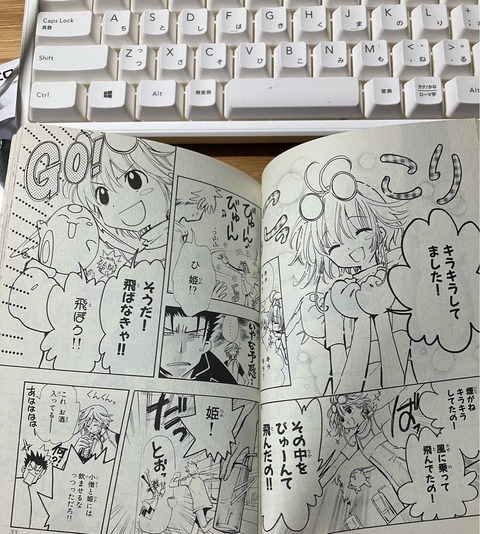 Caps Lock
英数
A
ち
S
と
D
し
F
は
G
き
H
く
J
ま
K
の
L
り
+
;
れ
Shift
Z
っ
つ
X
さ
C
そ
V
ひ
B
こ
N
み
M
も
<
、
,
ね
>
。
.
る
Ctrl
Alt
無変換
変換
カナ/かな
ローマ字
Alt
こり
キラキラして
ました!
煙がね
キラキラ
してたの!
ばっ
風に乗って
飛んでたの!
その中を
びゅーんて
飛んだの!!
GO!
びゅん
びゅん
ひ
姫!?
そうだー
飛ばなきゃ!!
飛ぼう!!
姫!
とおっ
くんくんっ
これ お酒
入ってる!
あはははは
何ぃ?
小僧と姫には
飲ませるな
っつっただろ!!
33